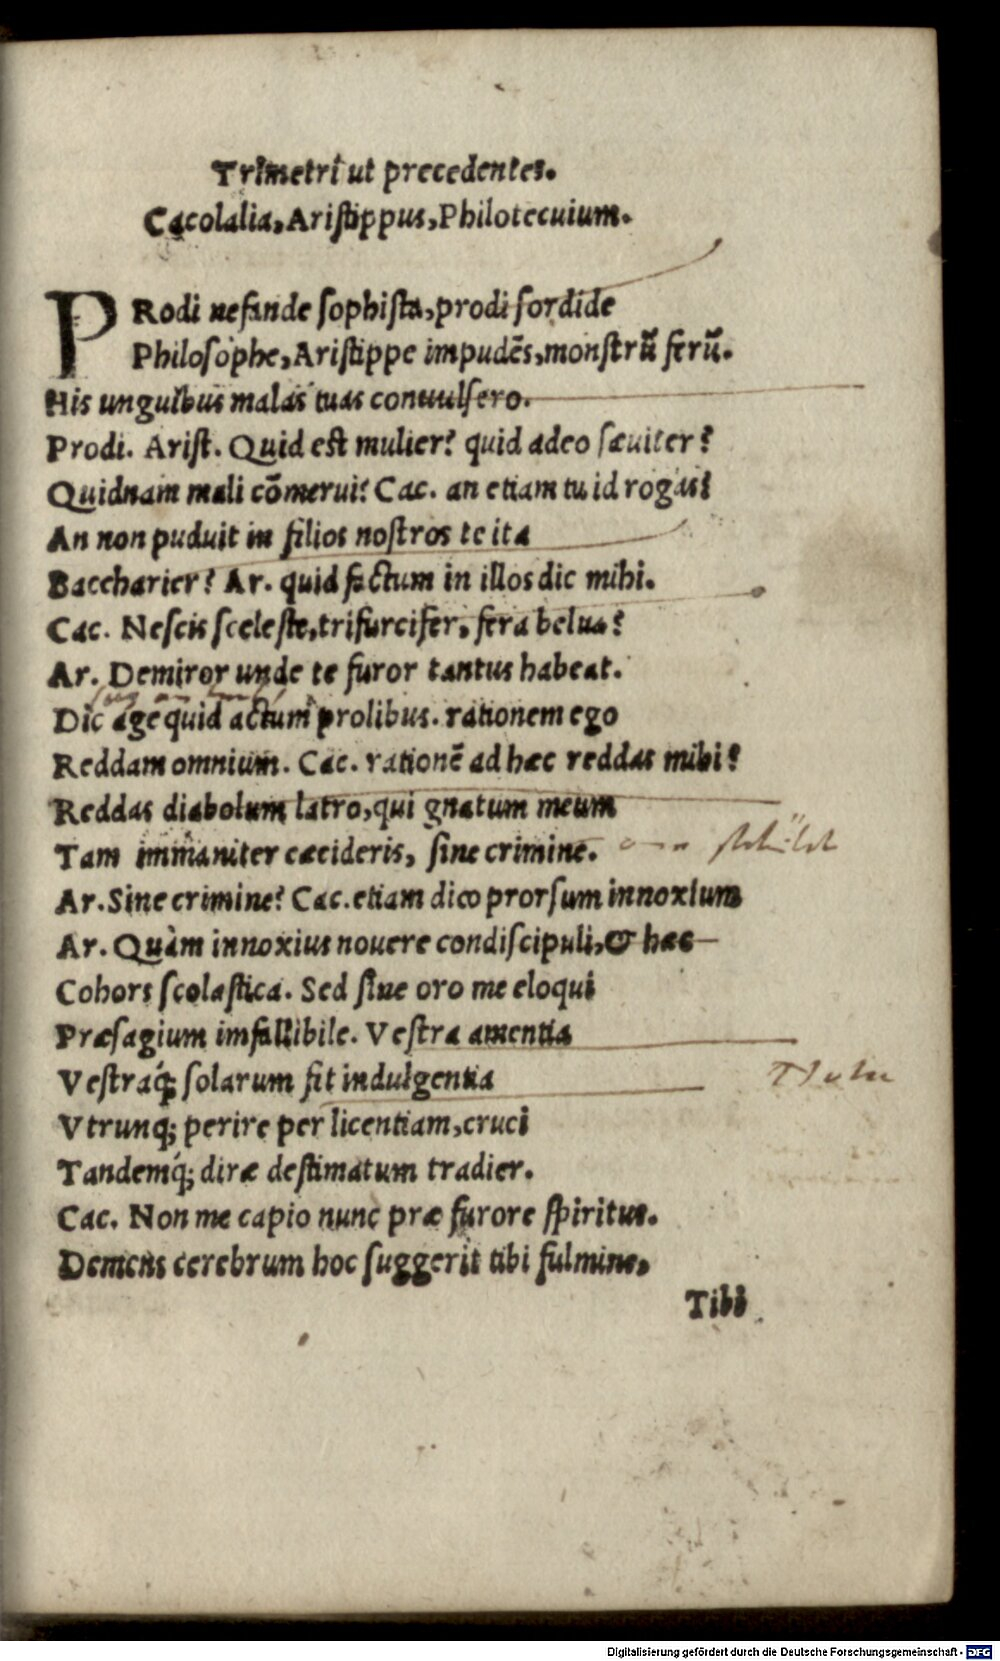 Trimetri ut precedentes.
Cacolalia, Aristippus, Philotecnium.
PRodi nefande sophista, prodi sordide
Philosophe, Aristippe impudẽs, monstrũ ferũ.
His unguibus malas tuas conuulsero.
Prodi. Arist. Quid est mulier? quid adeo sæuiter?
Quidnam mali cõmerui? Cac. an etiam tu id rogas?
An non puduit in filios nostros te ita
Baccharier? Ar. quid factum in illos dic mihi.
Cac. Nescis sceleste, trifurcifer, fera belua?
Ar. Demiror unde te furor tantus habeat.
Dic age quid actum prolibus. rationem ego
Reddam omnium. Cac. rationẽ ad hæc reddas mihi?
Reddas diabolum latro, qui gnatum meum
Tam immaniter cæcideris, sine crimine.
Ar. Sine crimine? Cac. etiam dico prorsum innoxium
Ar. Quàm innoxius nouere condiscipuli, & hæc
Cohors scolastica. Sed sine oro me eloqui
Præsagium imfallibile. Vestra amentia
Vestraq́; solarum fit indulgentia
Vtrunq; perire per licentiam, cruci
Tandemq́; diræ destimatum tradier.
Cac. Non me capio nunc præ furore spiritus.
Demens cerebrum hoc suggerit tibi fulmine,
Tibi
Digitalisierung gefördert durch die Deutsche Forschungsgemeinschaft - DFG